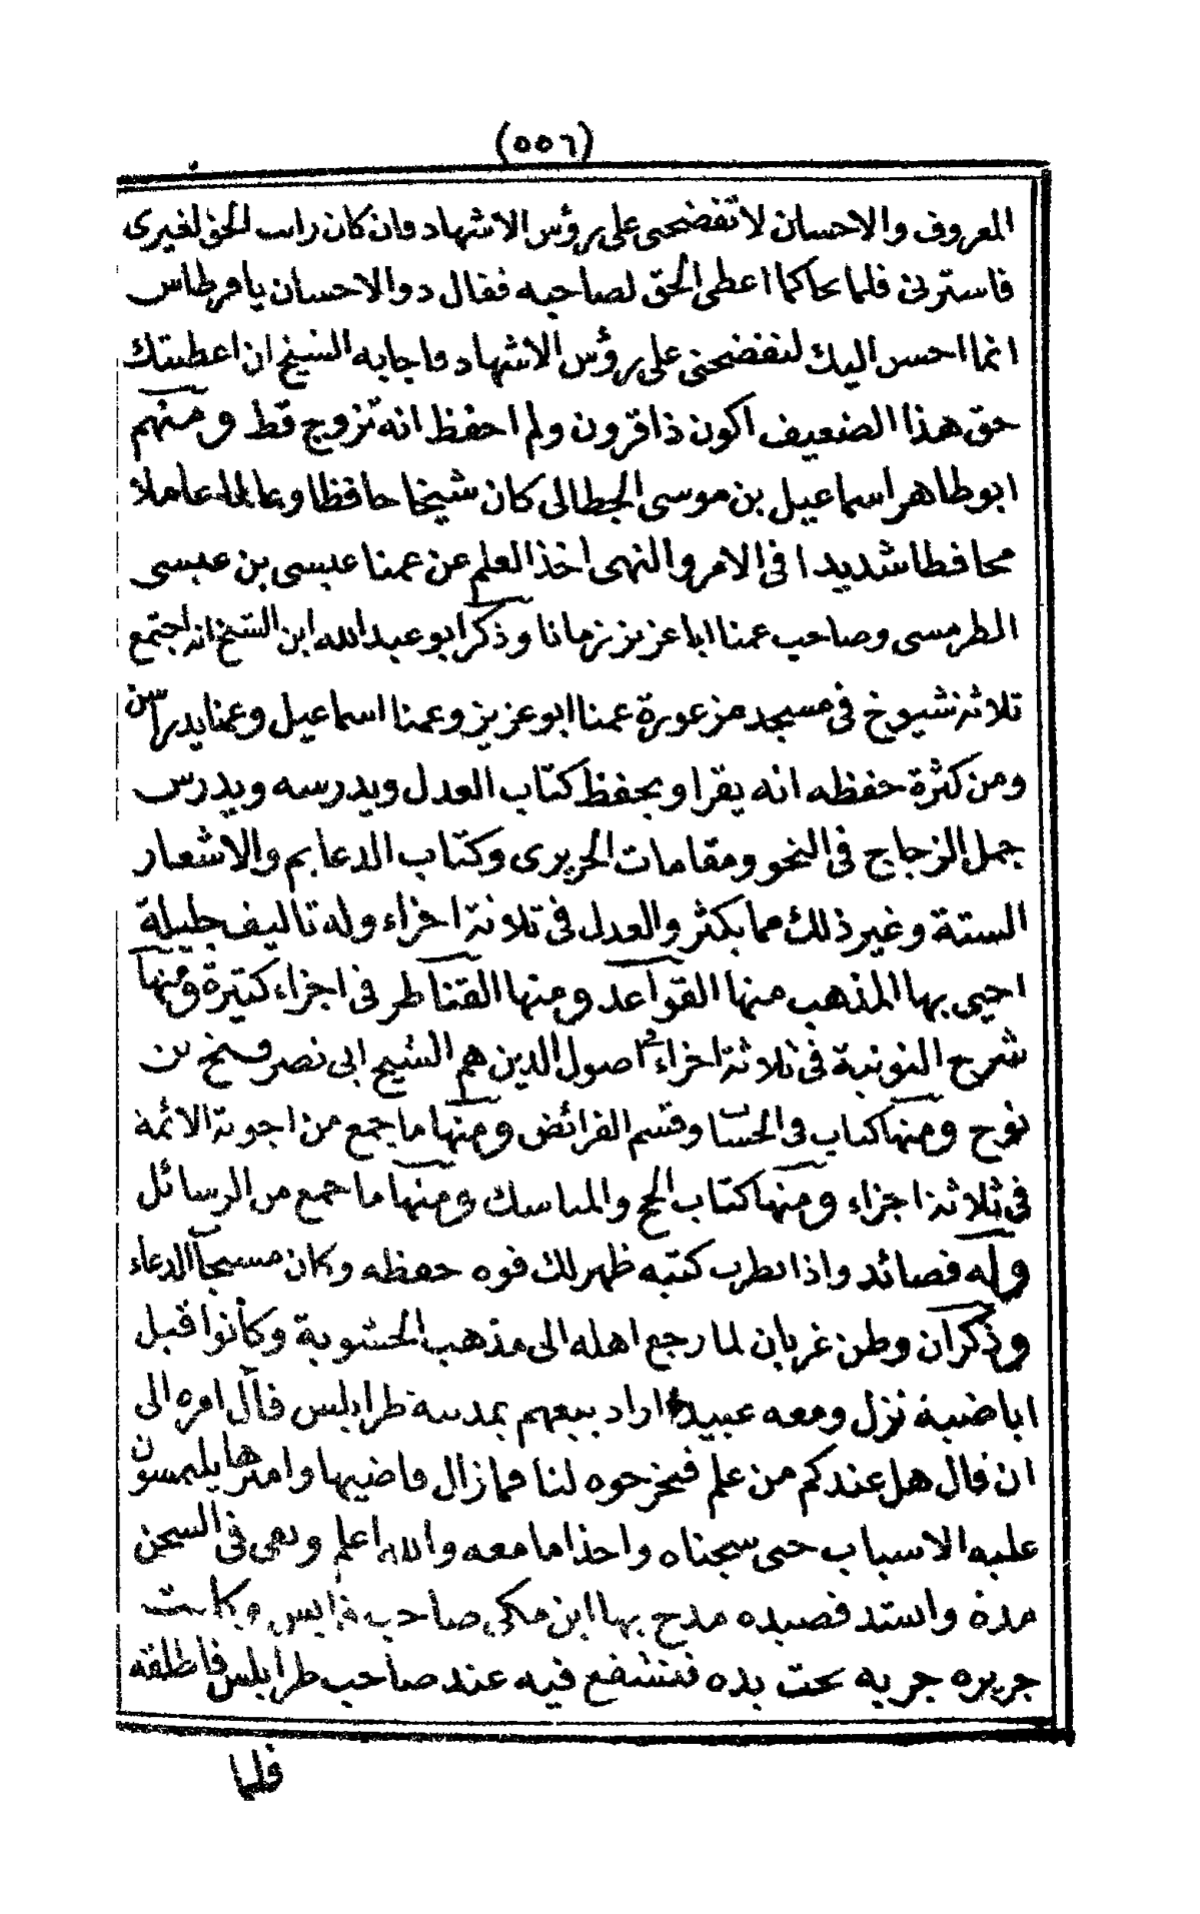 (٥٥٦)
المعروف والاحسان لا تفضحنى على رؤس الاشهاد وان كان رايت الحق لغيرى
فاسترنى فلما تحاكما اعطى الحق لصاحبه فقال ذو الاحسان يا فرطاس
انما احسن اليك لتفضحنى على رؤس الاشهاد فاجابه الشيخ ان اعطيتك
حق هذا الضعيف اكون ذا قرون ولم احفظ انه تزوج قط ومنهم
ابو طاهر اسماعيل بن موسى الجطالى كان شيخا حافظا وعالما عاملا
محافظا شديدا فى الامر والنهى اخذ العلم عن عمنا عيسى بن عيسى
الطرمسى وصاحب عمنا ابا عزيز زمانا وذكر ابو عبد الله ابن الشيخ انه اجتمع
ثلاثة شيوخ فى مسجد مزغورة عمنا ابو عزيز وعمنا اسماعيل وعمنا يدراسن
ومن كثرة حفظه انه يقرا ويحفظ كتاب العدل ويدرسه ويدرس
جمل الزجاج فى النحو ومقامات الحريرى وكتاب الدعايم والاشعار
الستة وغير ذلك مما يكثر والعدل فى ثلاثة اجزاء وله تاليف جليلة
احيى بها المذهب منها القواعد ومنها القناطر فى اجزاء كثيرة ومنها
شرح النونية فى ثلاثة اجزاء فى اصول الدين هم الشيخ ابى نصر فتح بن
نوح ومنها كتاب فى الحساب وقسم الفرائض ومنها ما جمع من اجوبة الائمة
فى ثلاثة اجزاء ومنها كتاب الحج والمناسك ومنها ما جمع من الرسائل
وله قصائد واذا نظرت كتبه ظهر لك قوة حفظه وكان مستجاب الدعاء
وذكر ان وطن غريان لما رجع اهله الى مذهب الحشوية وكانوا قبل
اباضية نزل ومعه عبيد اراد بيعهم بمدينة طرابلس فآل امره الى
ان قال هل عندكم من علم فتخرجوه لنا فما زال قاضيها واميرها يلتمسون
عليه الاسباب حتى سجناه واخذا ما معه والله اعلم وبقى فى السجن
مدة وانشد قصيدة مدح بها ابن مكى صاحب قابس وكانت
جزيرة جربة تحت يده فتشفع فيه عند صاحب طرابلس فاطلقه
فلما